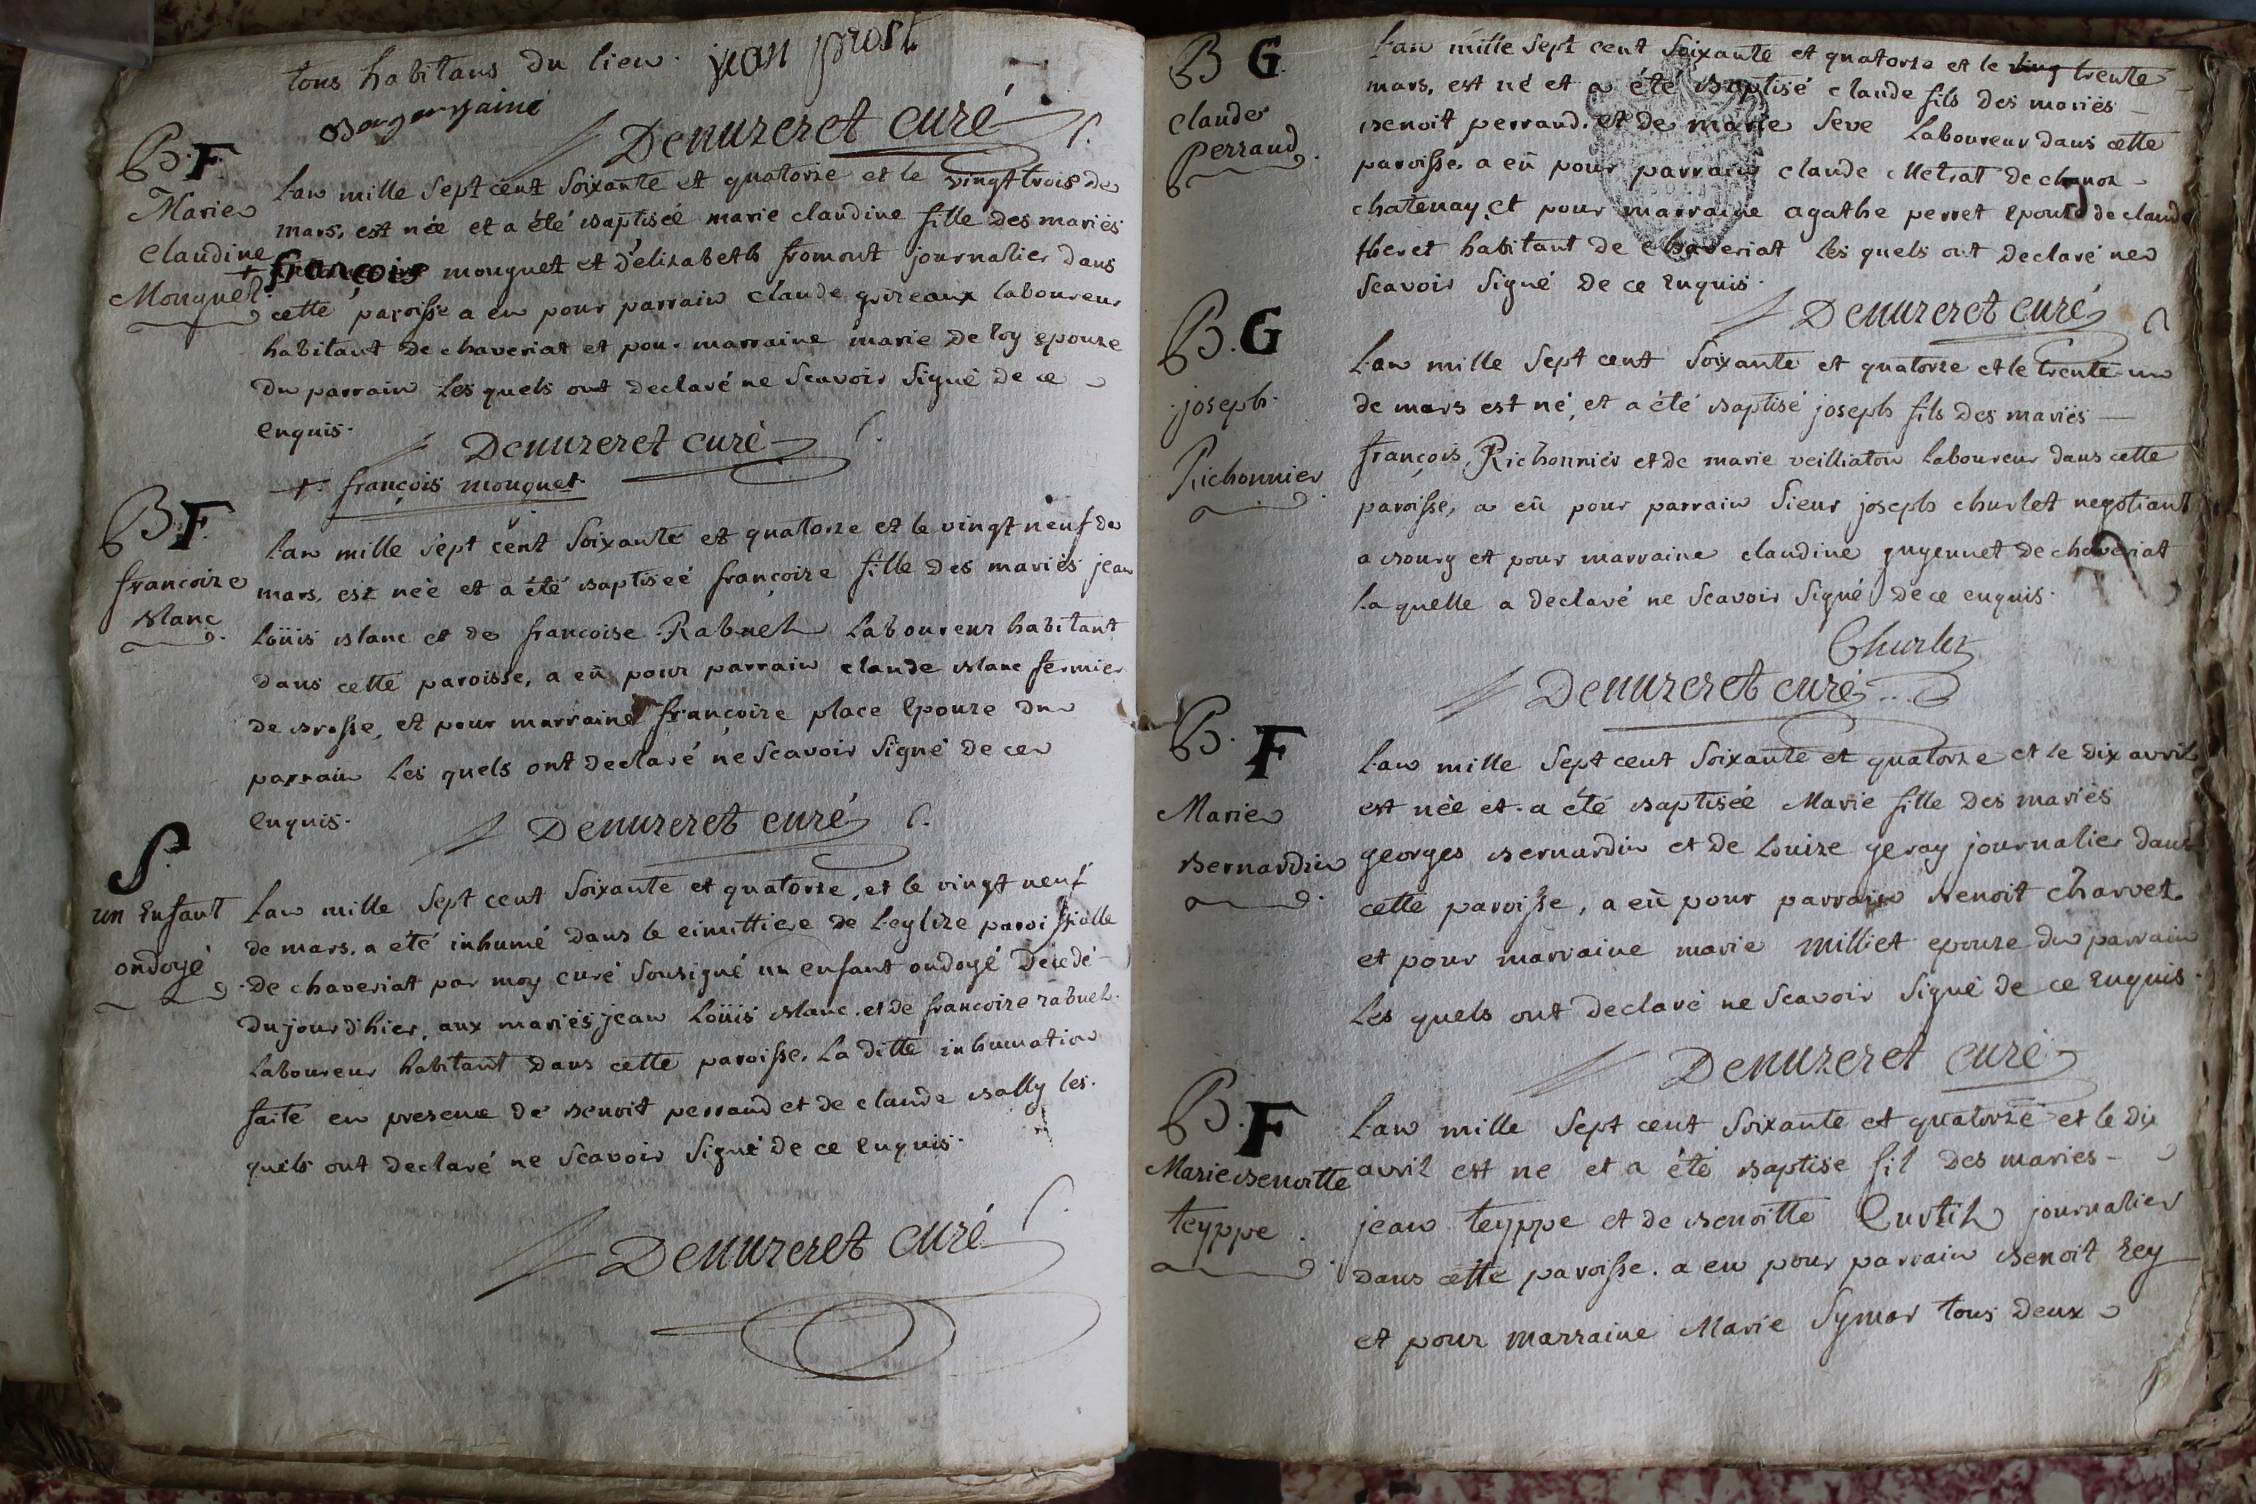 tous habitans du lieu. jean prost
Denuzeret curé
B. F.
Marie
Claudine
+
Monquet.
L'an mille sept cent soixante et quatorze et le vingt trois de
mars, est née et a été baptiseé marie claudine fille des mariés
françois monquet et d'elizabeth fromont journalier dans
cette paroisse a eu pour parrain claude grizeaux laboureur
habitant de chaveriat et pour marraine marie de loy epouze
du parrain les quels ont declaré ne scavoir signé de ce
enquis.
Denuzeret curé
+ françois monquet.
B. F.
francoize
blanc
L'an mille sept cent soixante et quatorze et le vingt neuf de
mars, est née et a été baptiseé françoize fille des mariés jean
Loüis blanc et de francoise Rabuel laboureur habitant
dans cette paroisse, a eü pour parrain claude blanc fermier
de brosse, et pour marraine françoize place Epouze du
parrain les quels ont declaré ne scavoir signé de ce
enquis.
Denuzeret curé
S.
un Enfant
ondoyé
L'an mille sept cent soixante et quatorze, et le vingt neuf
de mars, a eté inhumé dans le cimittiere de l'eglize paroissialle
de chaveriat par moy curé sousigné un enfant ondoyé Decedé
du jour d'hier, aux mariés jean Loüis blanc, et de francoize rabuel.
laboureur habitant dans cette paroisse. La ditte inhumation
faite en presence de benoit perraud et de claude bally les.
quels ont declaré ne scavoir signé de ce enquis.
Denuzeret curé
B G.
claude
Perraud.
L'an mille sept cent soixante et quatorze et le ving trente
mars, est né et a été baptisé claude fils des mariés
benoit perraud, et de marie seve laboureur dans cette
paroisse, a eü pour parrain claude Metrat de chanoz
chatenay, et pour marraine agathe perret epouze de claude
theret habitant de chaveriat les quels ont declaré ne
scavoir signé de ce enquis.
Denuzeret curé
B. G
joseph.
Richonnier.
L'an mille sept cent soixante et quatorze et le trente un
de mars est né, et a été baptisé joseph fils des mariés
françois Richonnier et de marie veilliaton laboureur dans cette
paroisse, a eü pour parrain sieur joseph churlet negotiant
a bourg et pour marraine claudine guyennet de chaveriat
la quelle a declaré ne scavoir signé de ce enquis.
Churlet
Denuzeret curé
B. F
Marie
bernardin
L'an mille sept cent soixante et quatorze et le dix avril
est née et a été baptiseé Marie fille des mariés
georges bernardin et de Louize geray journalier dans
cette paroisse, a eü pour parrain benoit charvet
et pour marraine marie milliet epouze du parrain
Les quels ont declaré ne scavoir signé de ce enquis.
Denuzeret curé
B. F
Marie benoitte
teyppe.
L'an mille sept cent soixante et quatorze et le dix
avril est ne et a été baptise fil des maries
jean teyppe et de benoitte Curtil journalier
dans cette paroisse. a eu pour parrain benoit Rey
et pour marraine Marie Symor tous deux